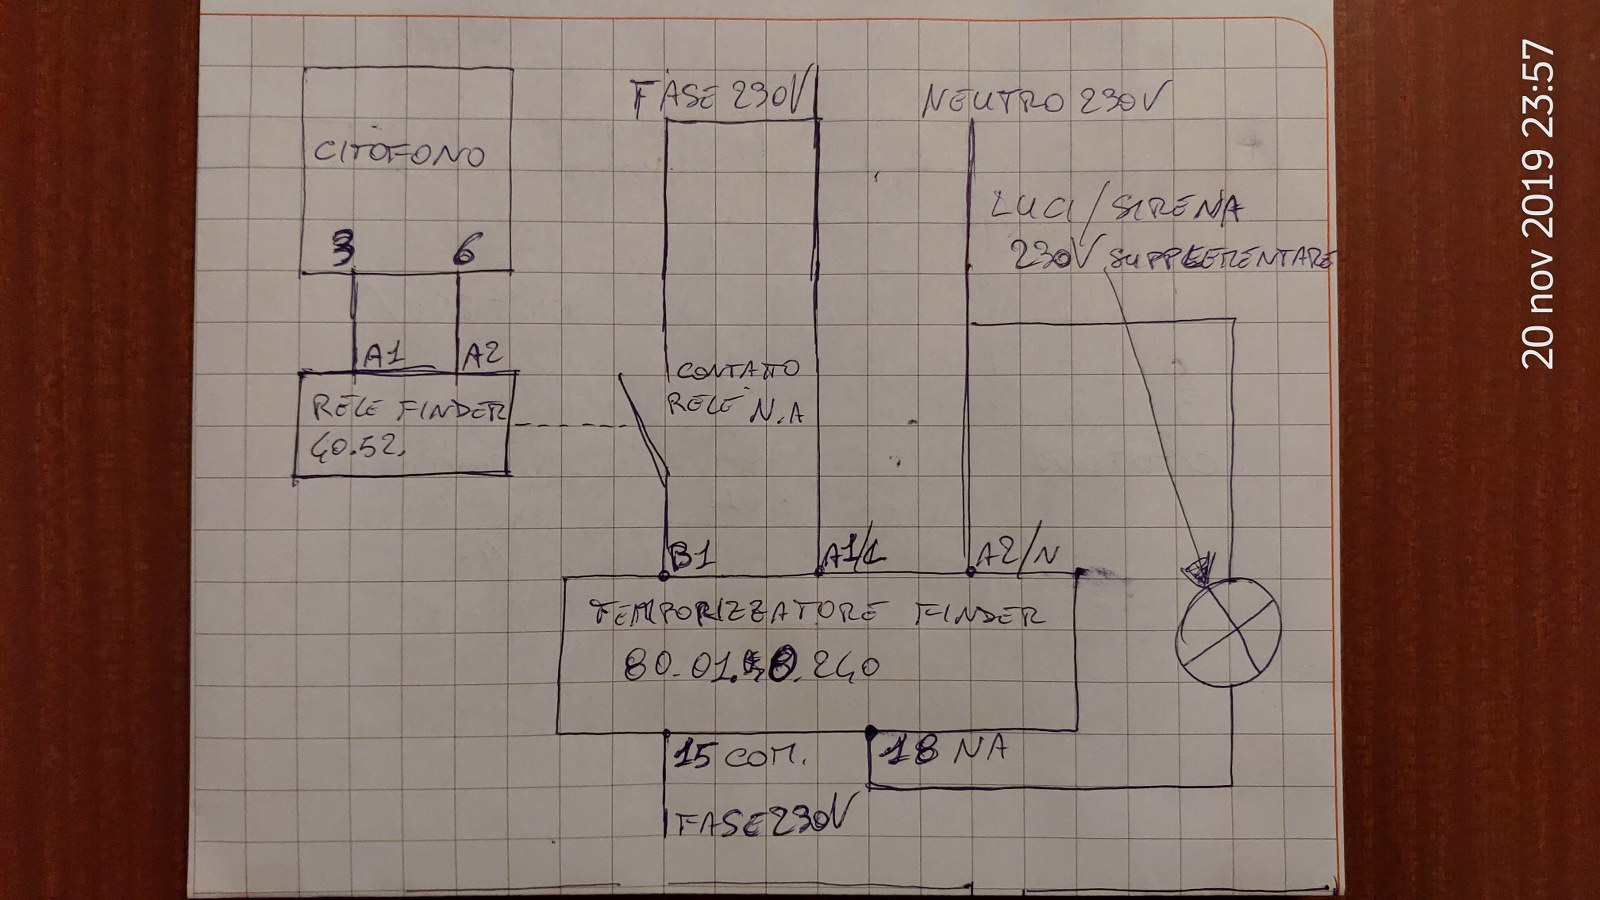 CITOFONO
3 6
A1 A2
RELE FINDER
40.52.
FASE 230V
NEUTRO 230V
LUCI/SIRENA
230V SUPPLEMENTARE
CONTATTO
RELE' N.A
B1 A1/L A2/N
TEMPORIZZATORE FINDER
80.01. .240
15 COM. 18 NA
FASE 230V
20 nov 2019 23:57